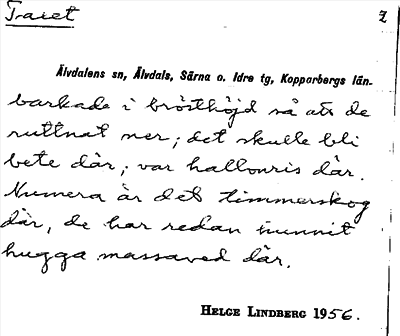 Traiet 2
Älvdalens sn, Älvdals, Särna o. Idre tg, Kopparbergs län.
barkade i brösthöjd så att de
ruttnat ner; det skulle bli
bete där; var hallonris där.
Numera är det timmerskog
där, de har redan hunnit
hugga massaved där.
HELGE LINDBERG 1956.